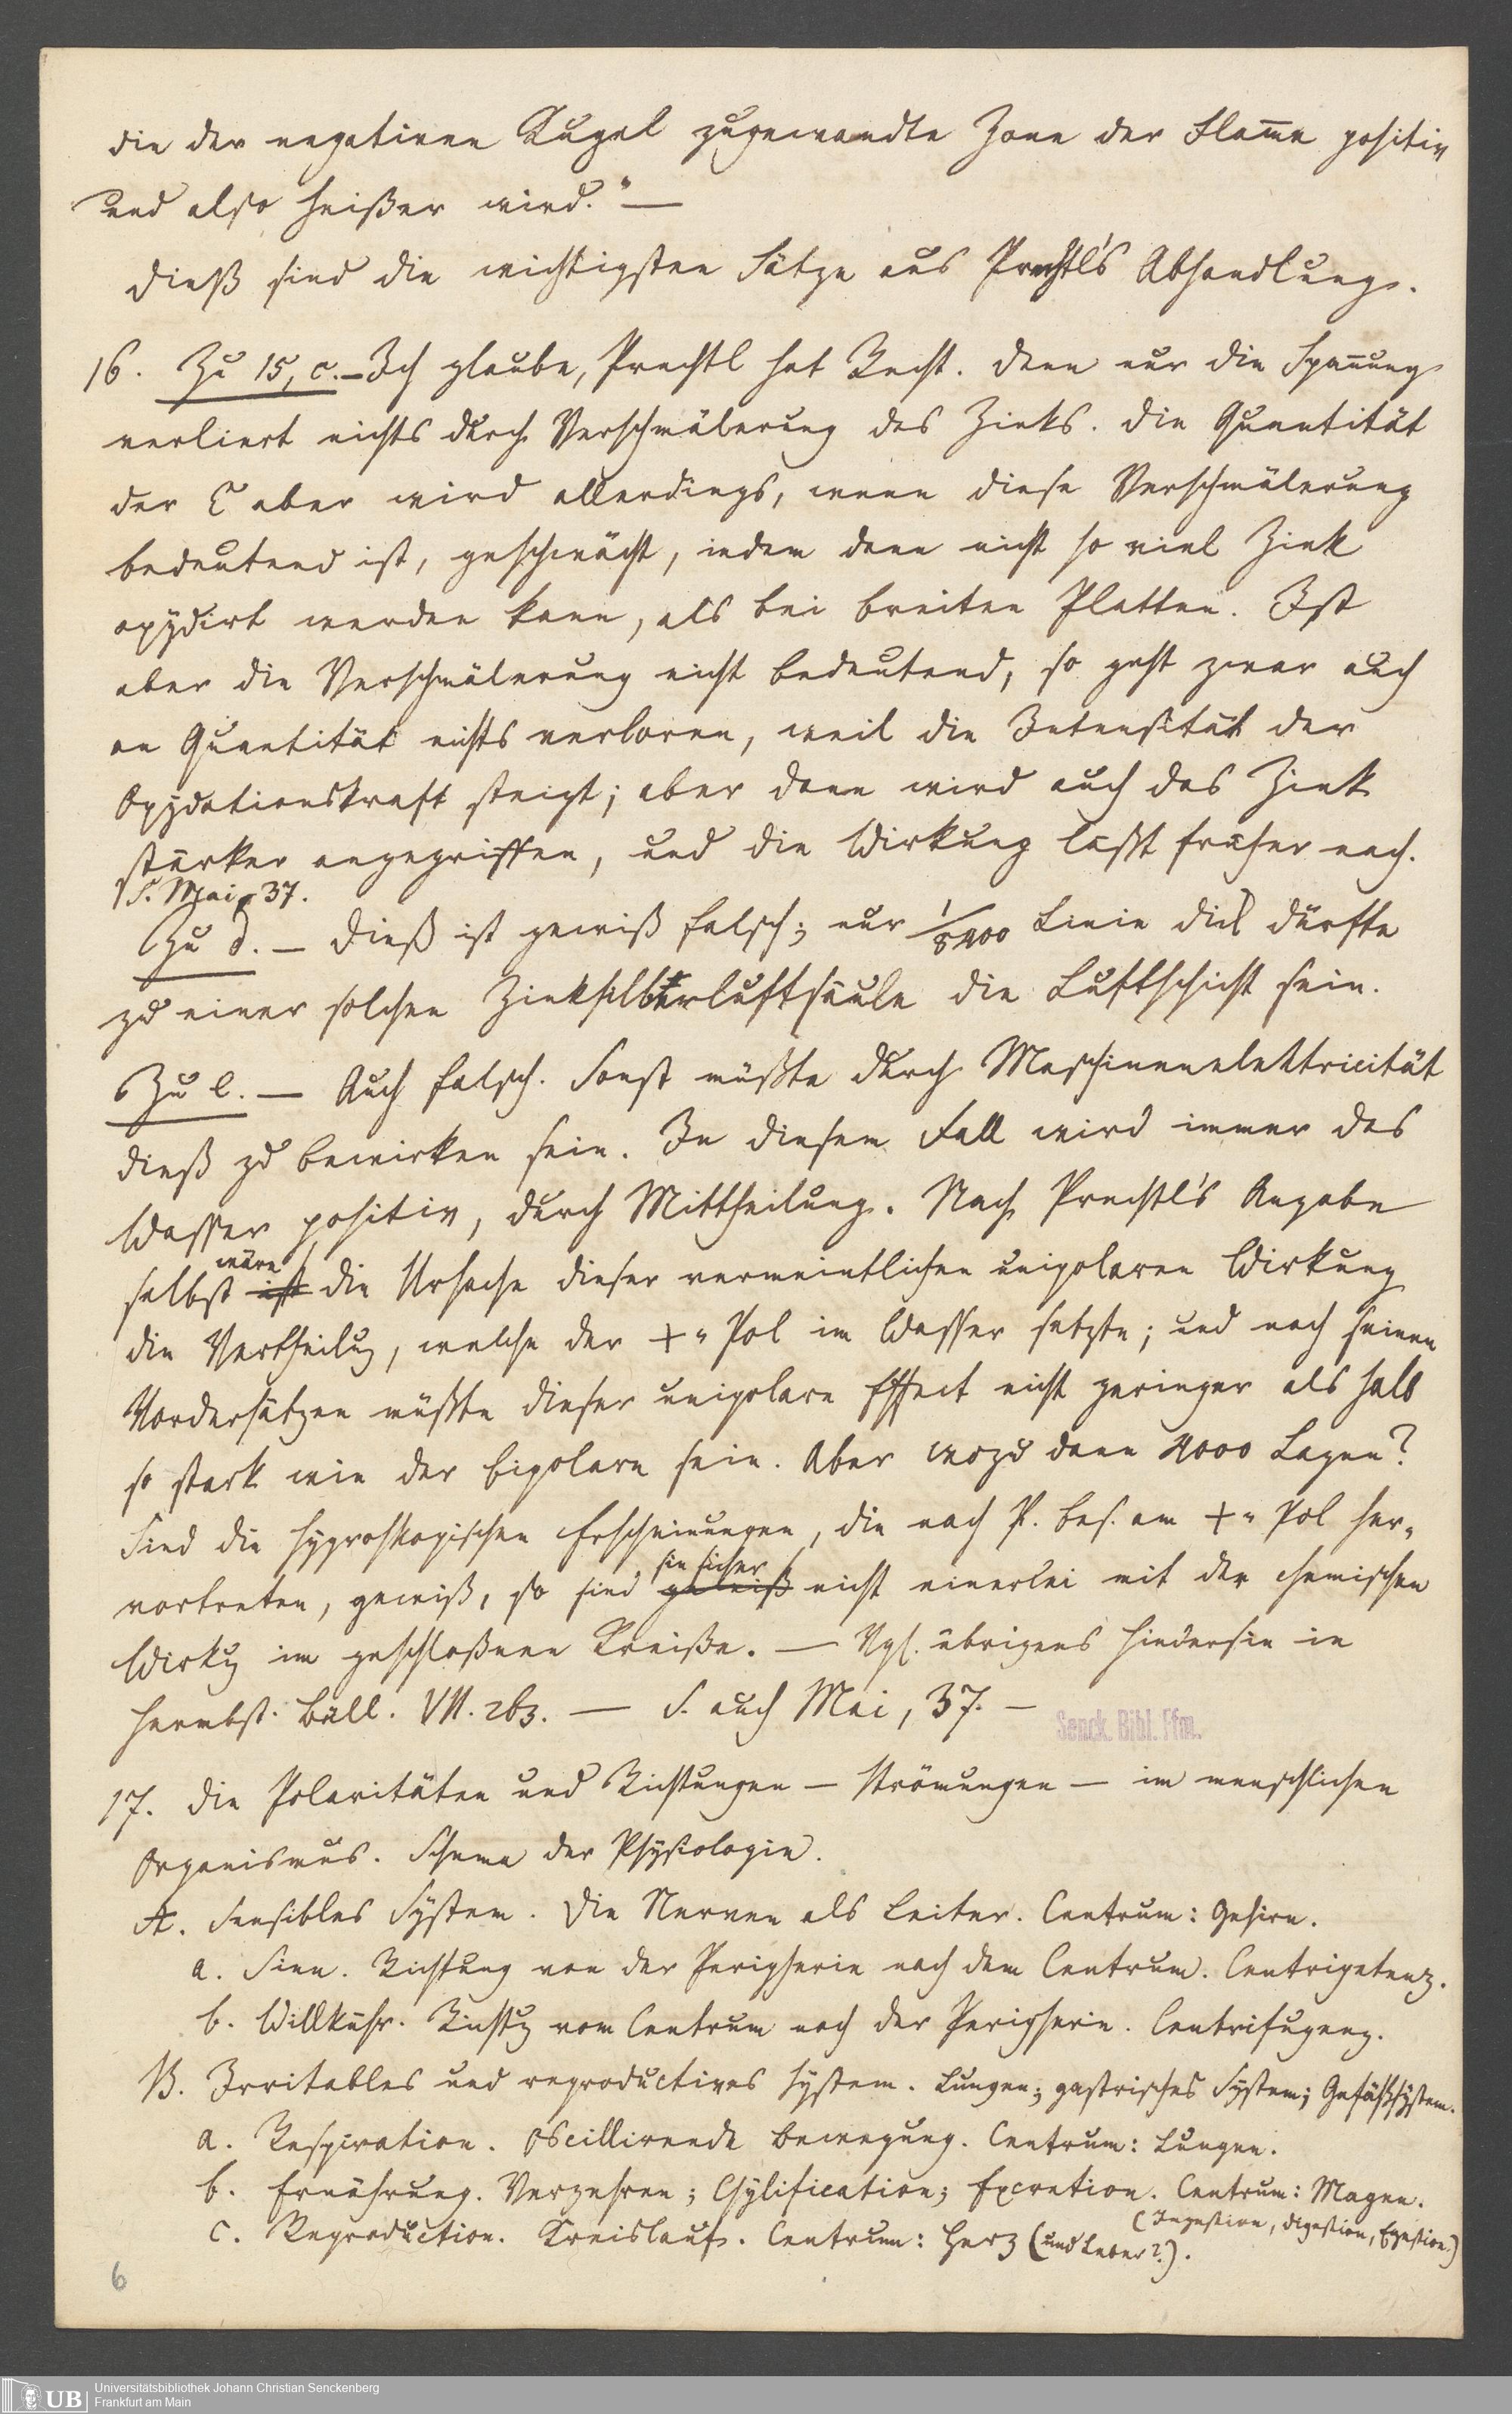 die der negativen Kugel zugewandte Zone der Flam̅e positiv
und also heißer wird.“ —
Dieß sind die wichtigsten Sätze aus Prechtl's Abhandlung.
16. Zu 15, c. — Ich glaube, Prechtl hat Recht. Denn nur die Span̅ung
verliert nichts durch Verschmälerung des Zinks. Die Quantität
der E aber wird allerdings, wenn diese Verschmälerung
bedeutend ist, geschwächt, indem dann nicht so viel Zink
oxydirt werden kann, als bei breiten Platten. Ist
aber die Verschmälerung nicht bedeutend, so geht zwar auch
an Quantität nichts verloren, weil die Intensität der
Oxydationskraft steigt; aber dann wird auch das Zink
stärker angegriffen, und die Wirkung läßt früher nach.
S. Mai, 37.
Zu d. — Dieß ist gewiß falsch; nur 1/8400 Linie dick dürfte
zu einer solchen Zinksilberluftsäule die Luftschicht sein.
Zu l. — Auch falsch. Sonst müßte durch Maschinenelektricität
dieß zu bewirken sein. In diesem Fall wird immer das
Wasser positiv, durch Mittheilung. Nach Prechtl's Angabe
wäre
selbst ist die Ursache dieser vermeintlichen unipolaren Wirkung
die Vertheilug, welche der + = Pol im Wasser setzte; und nach seinen
Vordersätzen müßte dieser unipolare Effect nicht geringer als halb
so stark wie der bipolare sein. Aber wozu dann 4000 Lagen?
Sind die hygroskopischen Erscheinungen, die nach P. bes. am + = Pol her=
sie sicher
vortreten, gewiß, so sind gewiß nicht einerlei mit der chemischen
Wirkg im geschloßnen Kreise. — Vgl. übrigens Hindersin in
Hermbst. Büll. VII. 263. — S. auch Mai, 37. —
Senck. Bibl. Ffm.
17. Die Polaritäten und Richtungen — Strömungen — im menschlichen
Organismus. Schema der Physiologie.
A. Sensibles System. Die Nerven als Leiter. Centrum: Gehirn.
a. Sinn. Richtung von der Peripherie nach dem Centrum. Centripetenz.
b. Willkühr. Richtg vom Centrum nach der Peripherie. Centrifugenz.
B. Irritables und reproductives System. Lungen; gastrisches System; Gefäßsystem.
a. Respiration. Oscillirende Bewegung. Centrum: Lungen.
b. Ernährung. Verzehren; Chylification; Excretion. Centrum: Magen.
(Ingestion, Digestion, Egestion.)
c. Reproduction. Kreislauf. Centrum: Herz (und Leber?).
6
UB
Universitätsbibliothek Johann Christian Senckenberg
Frankfurt am Main